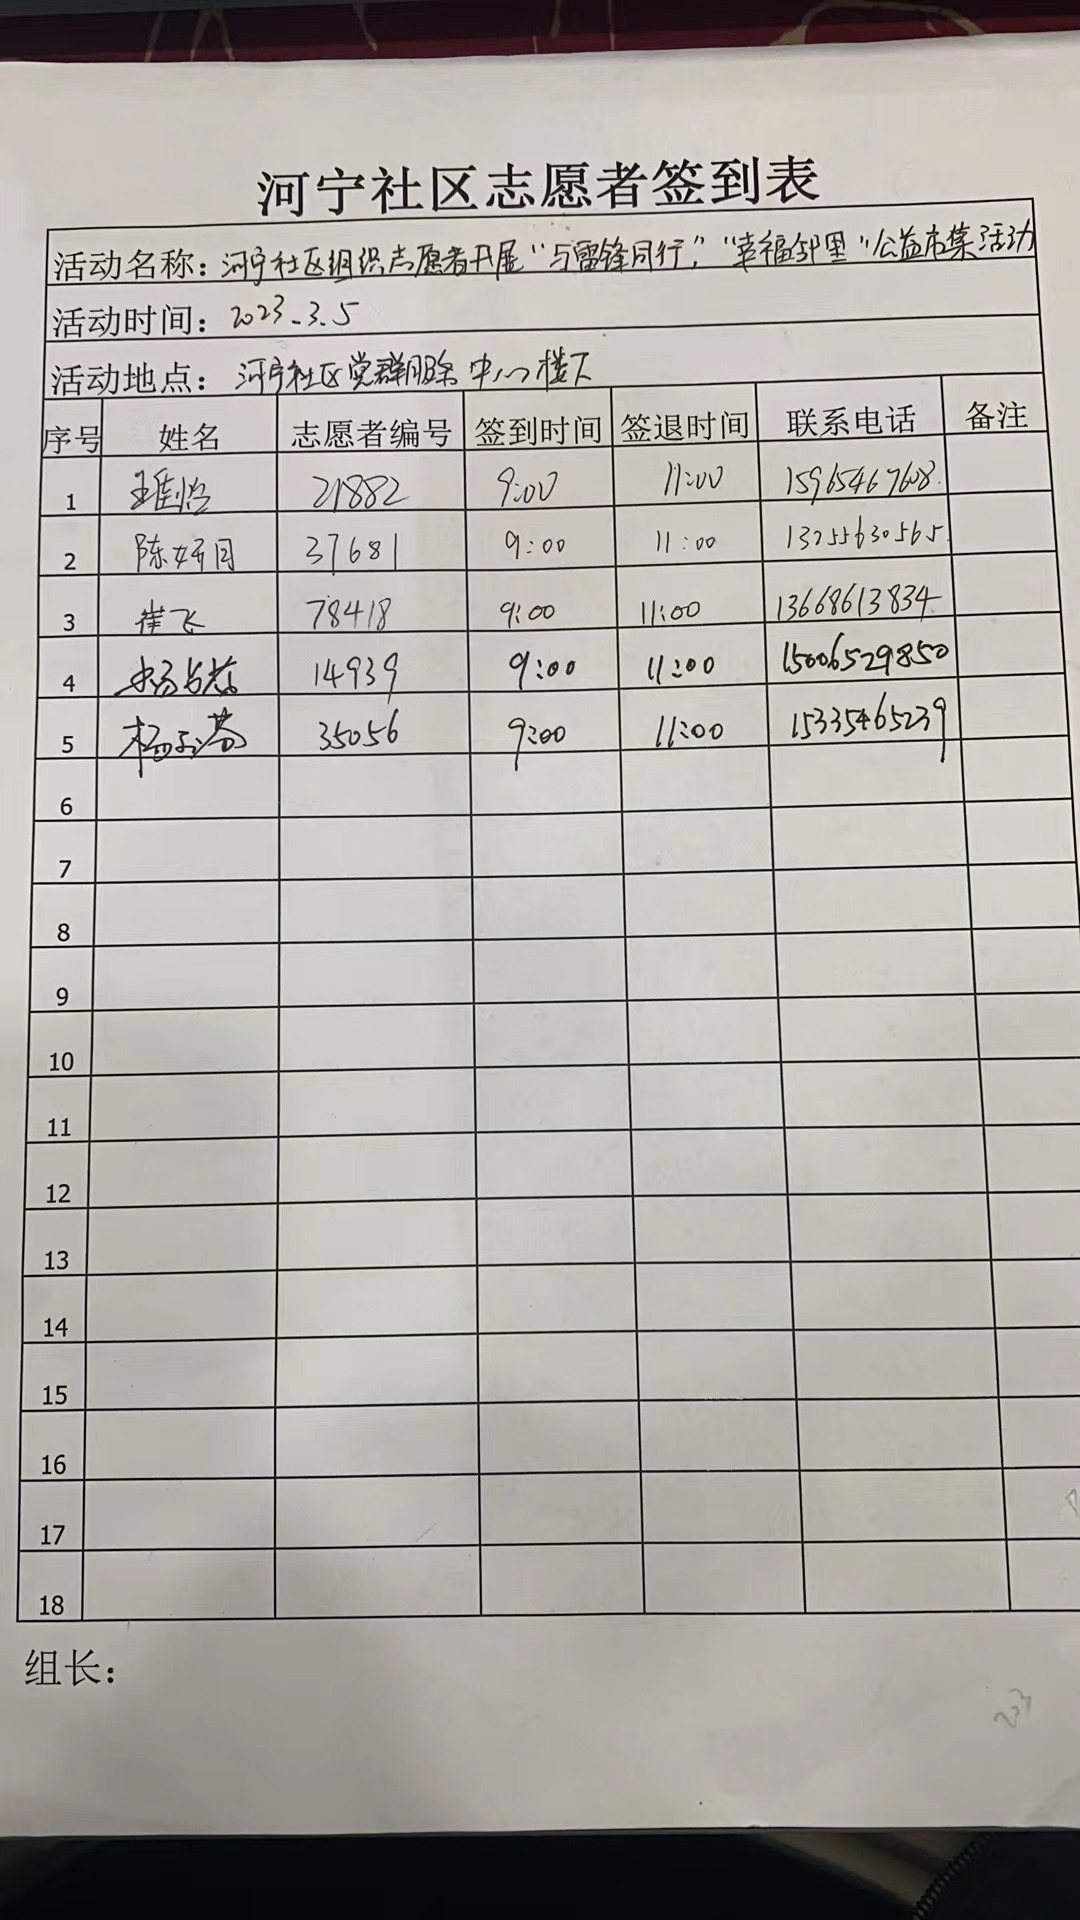 河宁社区志愿者签到表
活动名称：河宁社区组织志愿者开展“与雷锋同行，”“幸福邻里”公益市集活动
活动时间：2023.3.5
活动地点：河宁社区党群服务中心楼下
序号 姓名 志愿者编号 签到时间 签退时间 联系电话 备注
1 21882 9:00 11:00 15965467608
2 陈妍同 37681 9:00 11:00 13255630565
3 崔飞 78418 9:00 11:00 13668613834
4 14939 9:00 11:00 15006529850
5 杨 35056 9:00 11:00 15335465239
6
7
8
9
10
11
12
13
14
15
16
17
18
组长：
203